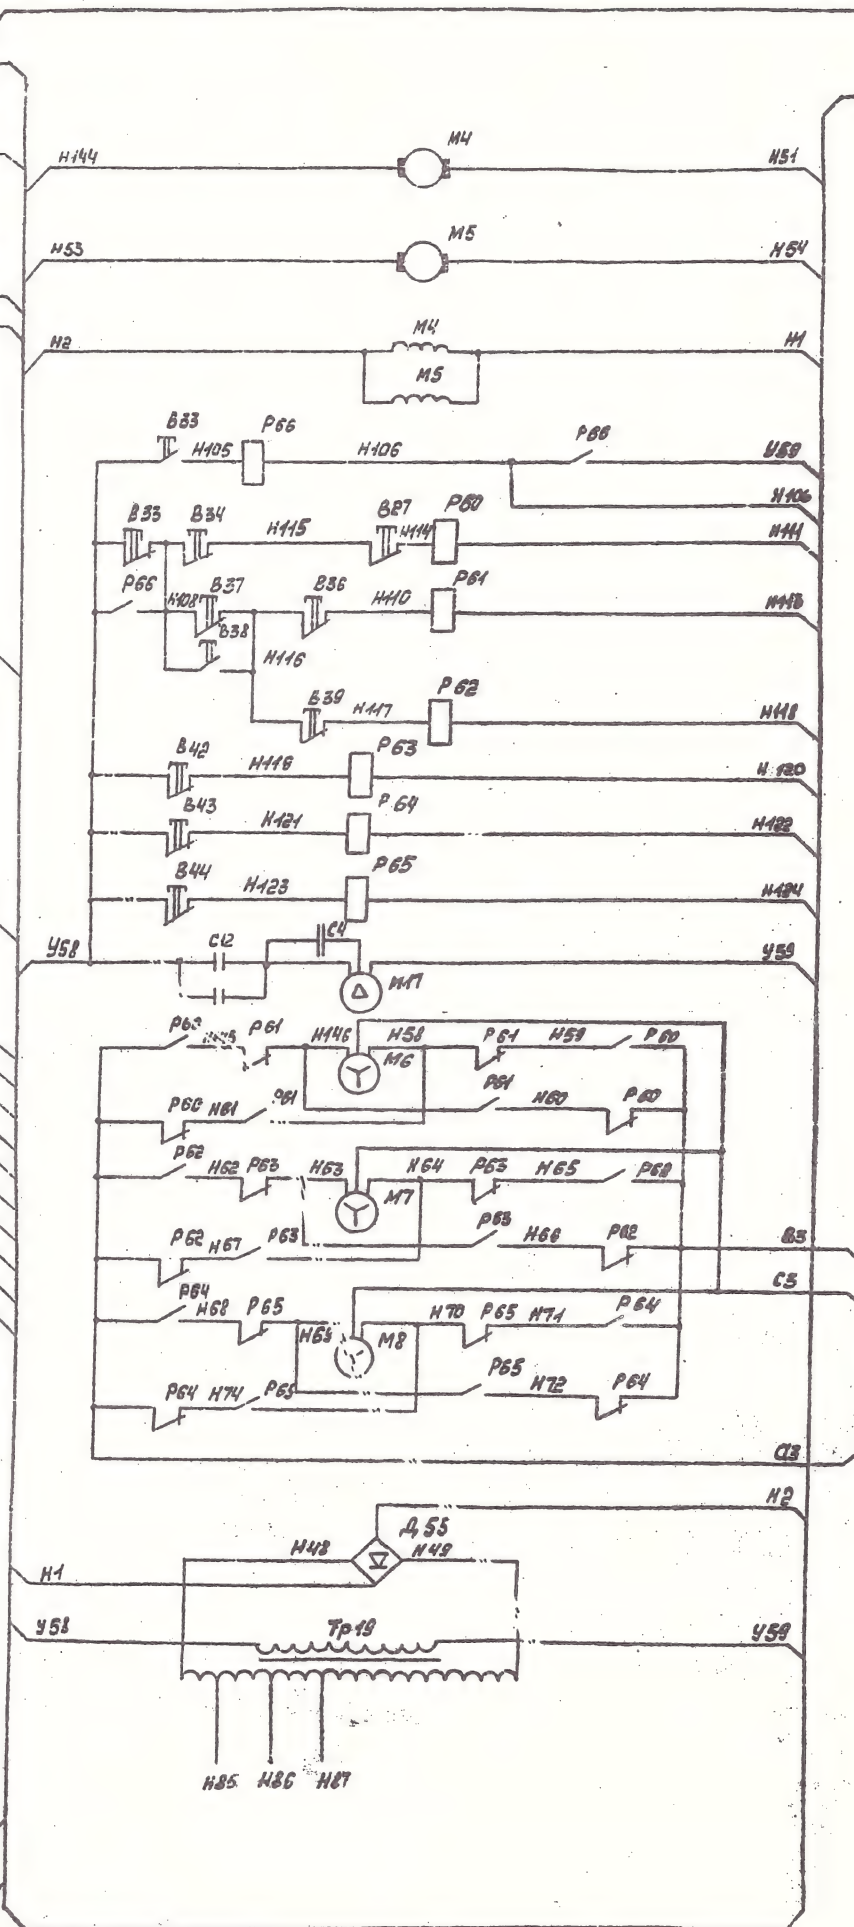 М4
Н144 Н51
М5
Н53 Н54
М4
Н2 Н1
М5
В33 Р66 Р66
Н105 Н106 У59
Н106
В33 В34 Н115 В27 Н114 Р60 Н111
Р66 Н108 В37 В36 Н110 Р61 Н113
В38 Н116
В39 Н117 Р62 Н118
В42 Н119 Р63 Н120
В43 Н121 Р64 Н122
В44 Н123 Р65 Н124
У58 С12 С4 У59
М17
Р60 Р61 Н146 Н58 Р61 Н59 Р60
М6
Р60 Н61 Р61 Р61 Н60 Р60
Р62 Н62 Р63 Н63 Н64 Р63 Н65 Р62
М7
Р62 Н67 Р63 Р63 Н66 Р62 В3
С3
Р64 Н68 Р65 Н69 М8 Н70 Р65 Н71 Р64
Р64 Н74 Р65 Р65 Н72 Р64
Н2
Д55
Н48 Н49
Н1
У58 Тр19 У59
Н85 Н86 Н87